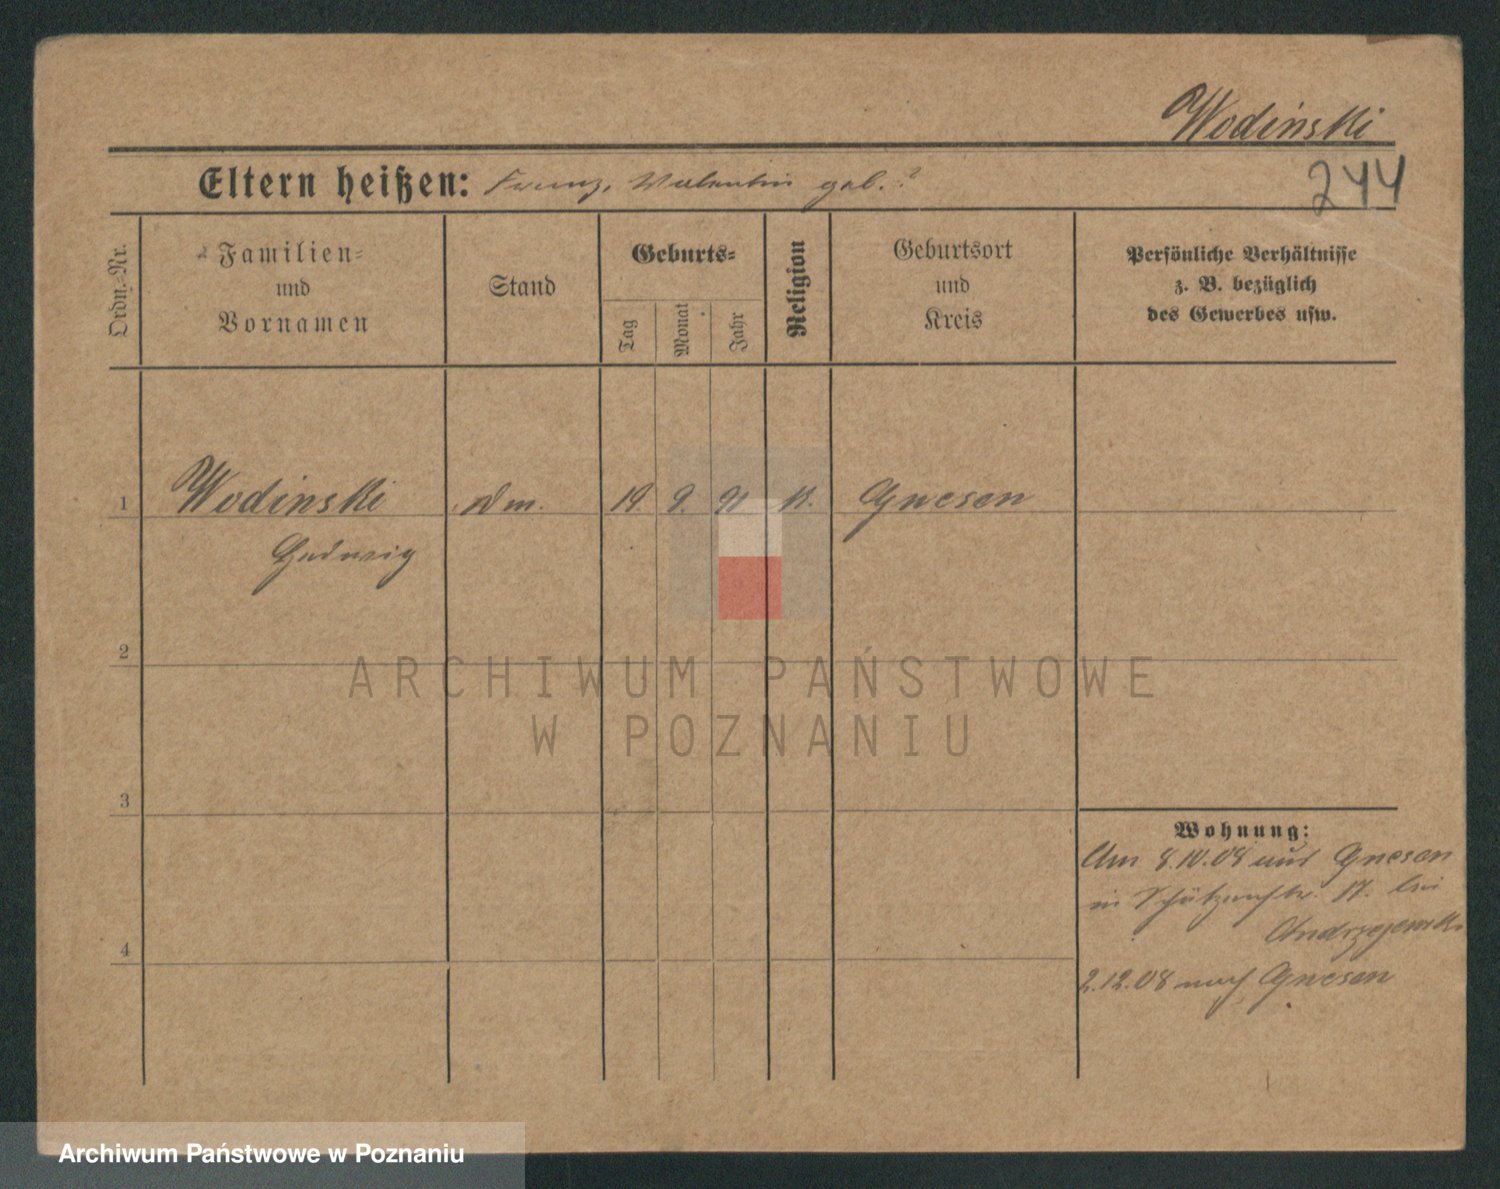 Wodinski
Eltern heißen: Franz, Valentin geb. ?
244
Ordn.-Nr.
Familien-
und
Vornamen
Stand
Geburts-
Tag
Monat
Jahr
Religion
Geburtsort
und
Kreis
Persönliche Verhältnisse
z. B. bezüglich
des Gewerbes usw.
1 Wodinski 19. 9. 91 k. Gnesen
Hedwig
2
3
4
Wohnung:
Am 8.10.08 aus Gnesen
in Schützenstr. 17. bei
2.12.08 nach Gnesen
ARCHIWUM PAŃSTWOWE
W POZNANIU
Archiwum Państwowe w Poznaniu